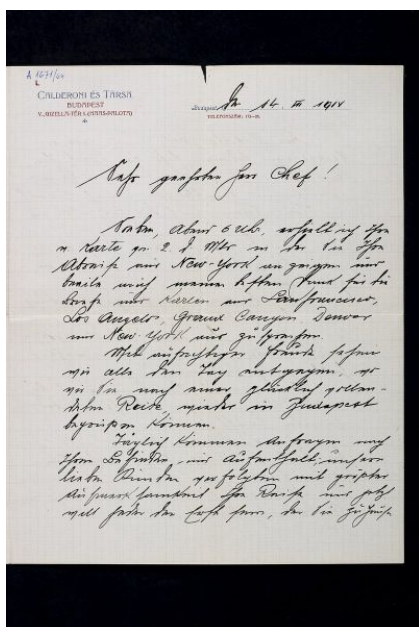 A 1671/64
CALDERONI ÉS TÁRSA
BUDAPEST
V., GIZELLA-TÉR 1. (HAAS-PALOTA)
Budapest, 14. III 1911
Sehr geehrter Herr Chef!
Soeben, Abend 6 Uhr, erhielt ich Ihre
w. Karte per 2. d. Mts in der Sie Ihre
Abreise aus New-York anzeigen und
beeile mich meinen besten Dank für die
Briefe und Karten aus Sanfrancisco,
Los Angelos, Grand Canyon Denver
und New-York auszusprechen.
Mit aufrichtiger Freude sehen
wir alle dem Tag entgegen, wo
wir Sie nach einer glücklich vollen-
deten Reise, wieder in Budapest
begrüßen können.
Täglich kommen Anfragen nach
Ihrem Befinden und Aufenthalt, unsere
lieben Kunden verfolgten mit größter
Aufmerksamkeit Ihre Reise und jetzt
will jeder der Erste sein, der Sie zu Hause